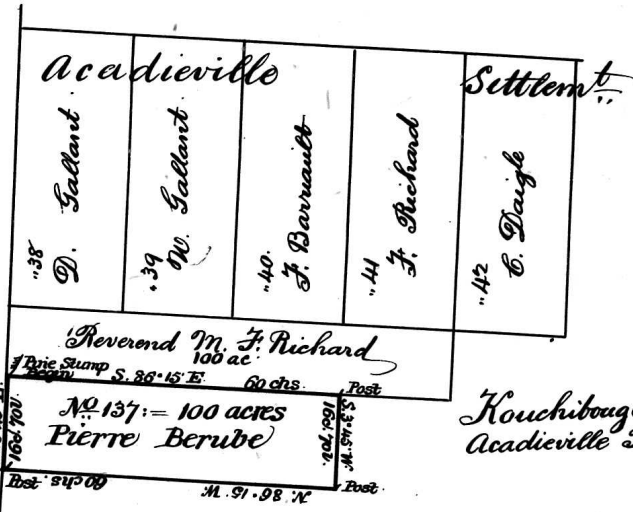 Acadieville Settlemt
"38 D. Gallant
"39 W. Gallant
"40. F. Barriault
"41 F. Richard
"42 C. Daigle
Reverend M. F. Richard
100 ac
Pine Stump
Begin
S. 86° 15' E. 60 chs. Post
No 137:= 100 acres
Pierre Berube
S. 3° 45' W.
16d. 70l.
16d. 70l.
Post
N. 86° 15' W. 60 chs Post
Kouchiboug
Acadieville